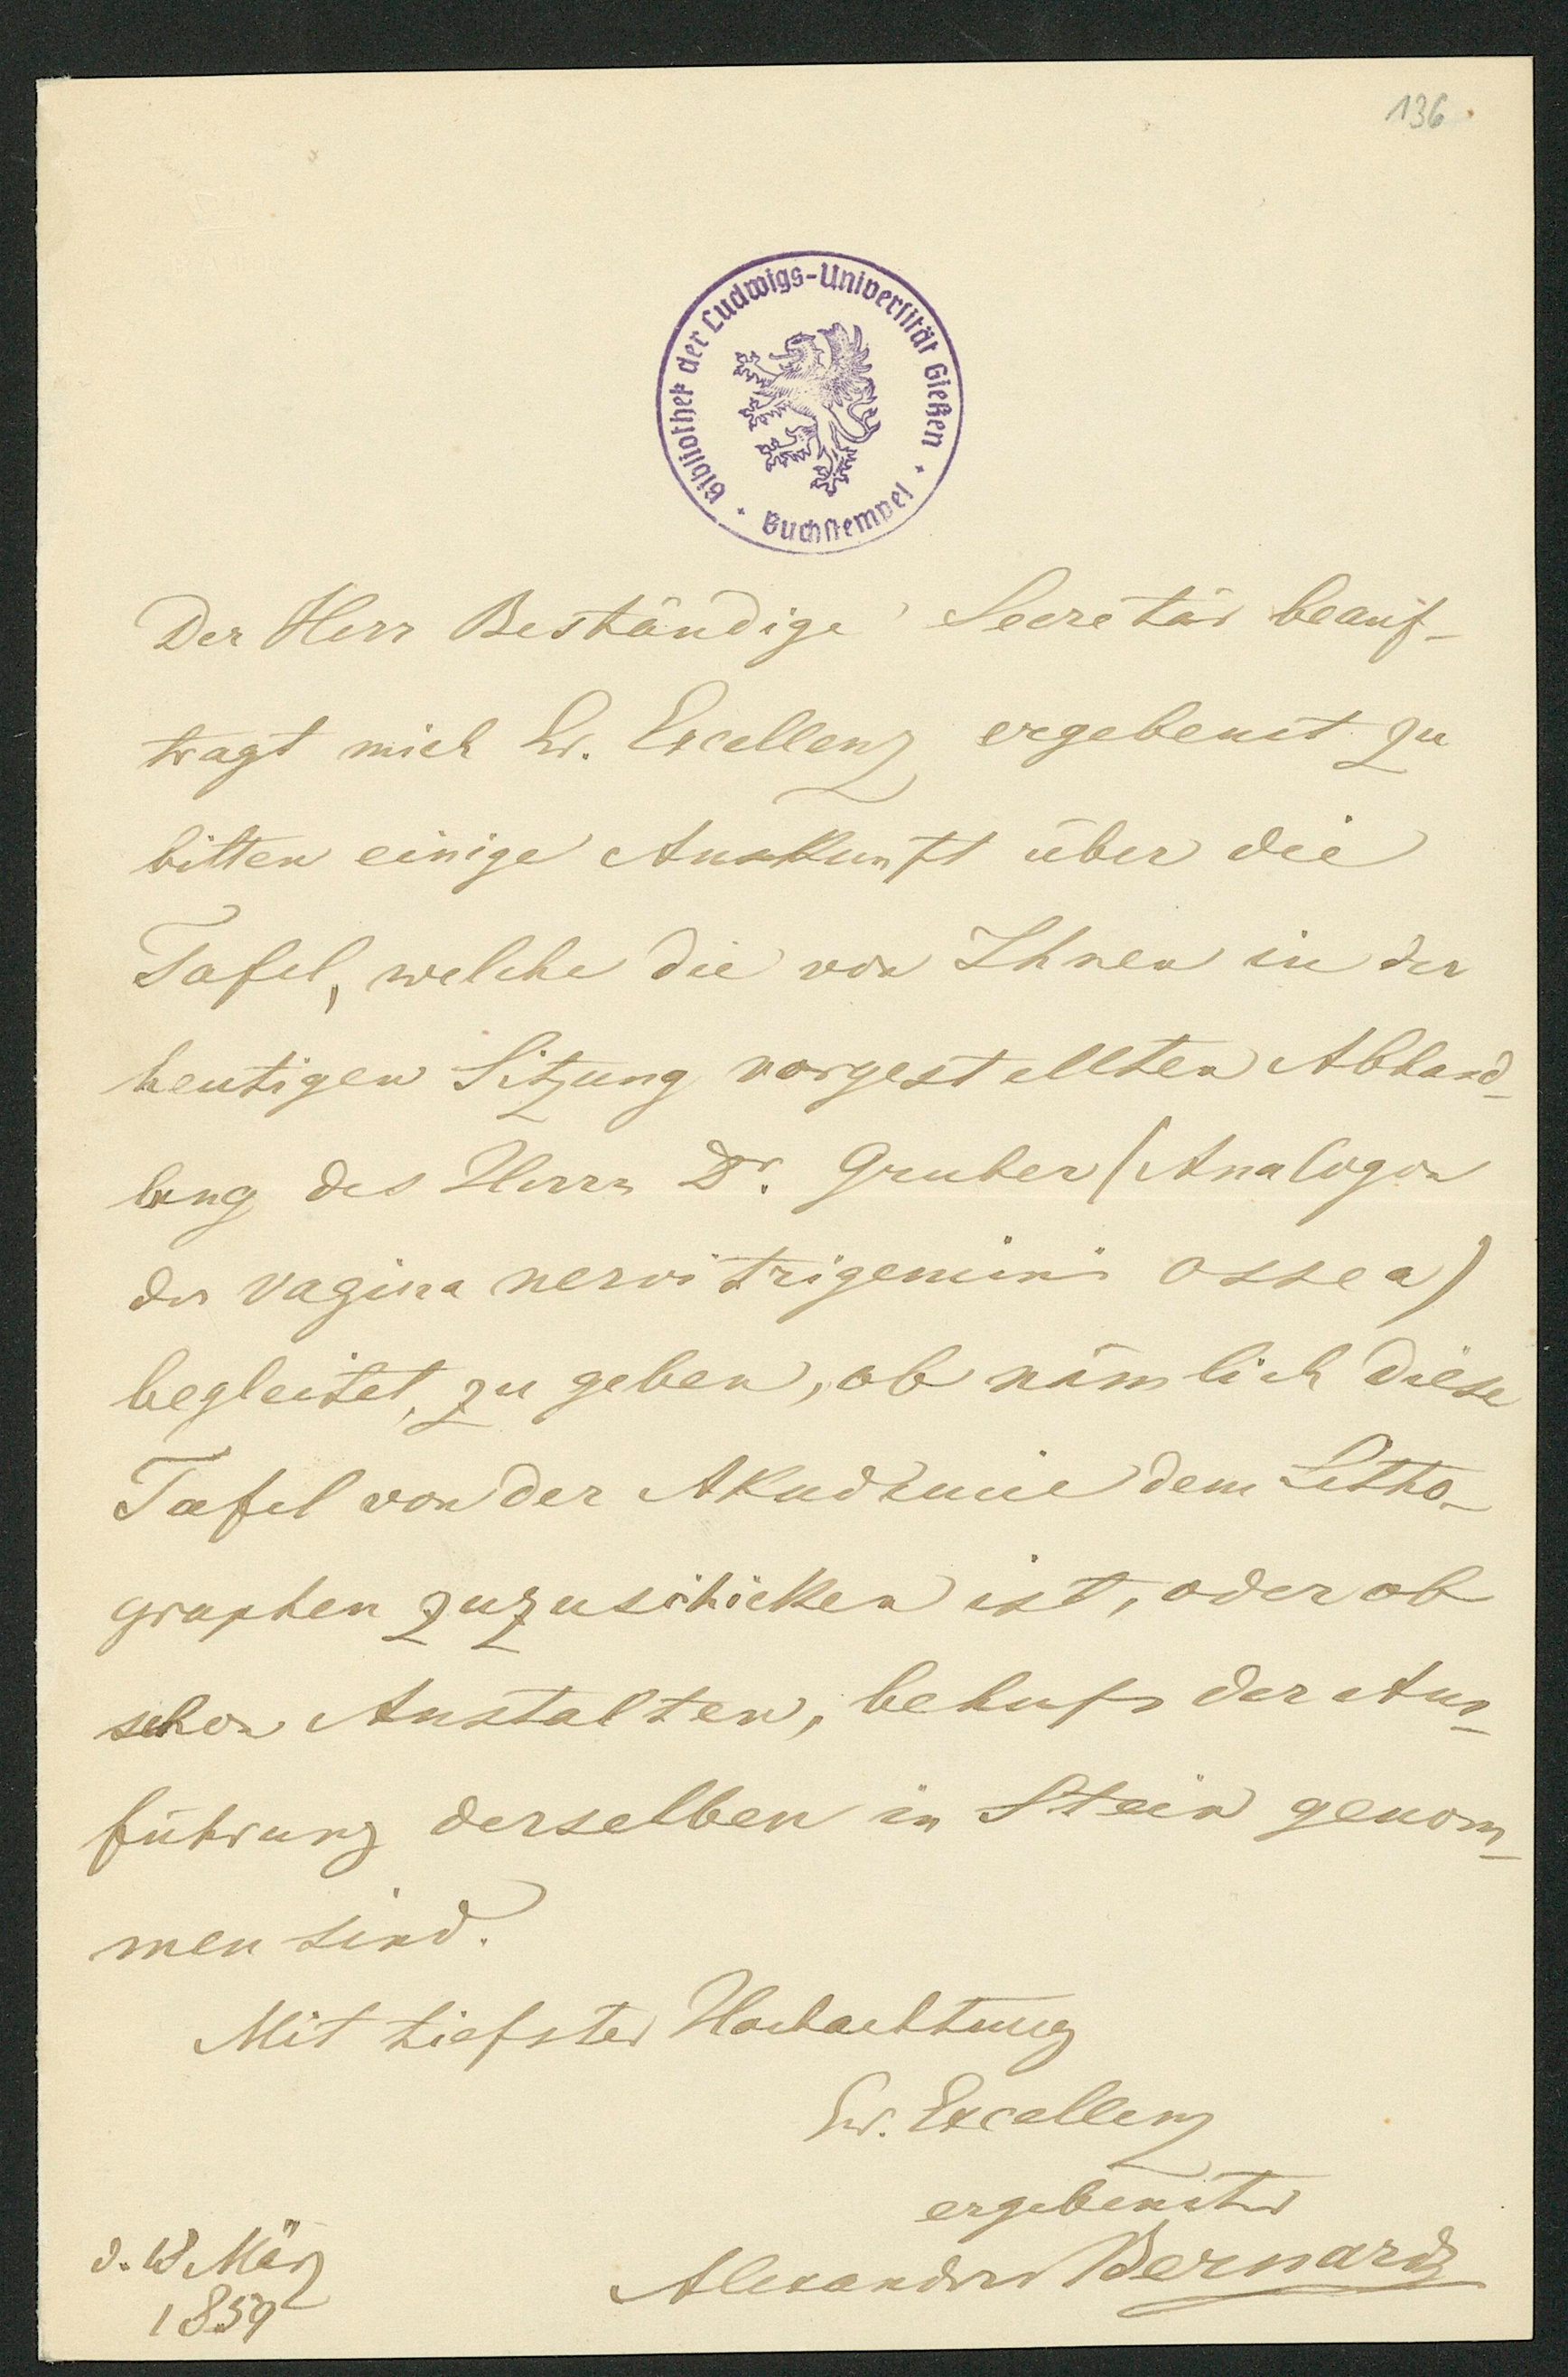 136.
Bibliothek der Ludwigs-Universität Gießen
Buchstempel
Der Herr Beständige Secretär beauf-
tragt mich Ew. Excellenz ergebenst zu
bitten einige Auskunft über die
Tafel, welche die von Ihnen in der
heutigen Sitzung vorgestellten Abhand-
lung des Herrn Dr. Gruber (Analogon
der vagina nervi trigemini ossea)
begleitet, zu geben, ob nämlich diese
Tafel von der Akademie dem Litho-
graphen zuzuschicken ist, oder ob
schon Anstalten, behufs der Aus-
führung derselben in Stein genom-
men sind.
Mit tiefster Hochachtung
Ew. Excellenz
ergebenster
Alexander Bernard
d. 18 März
1859